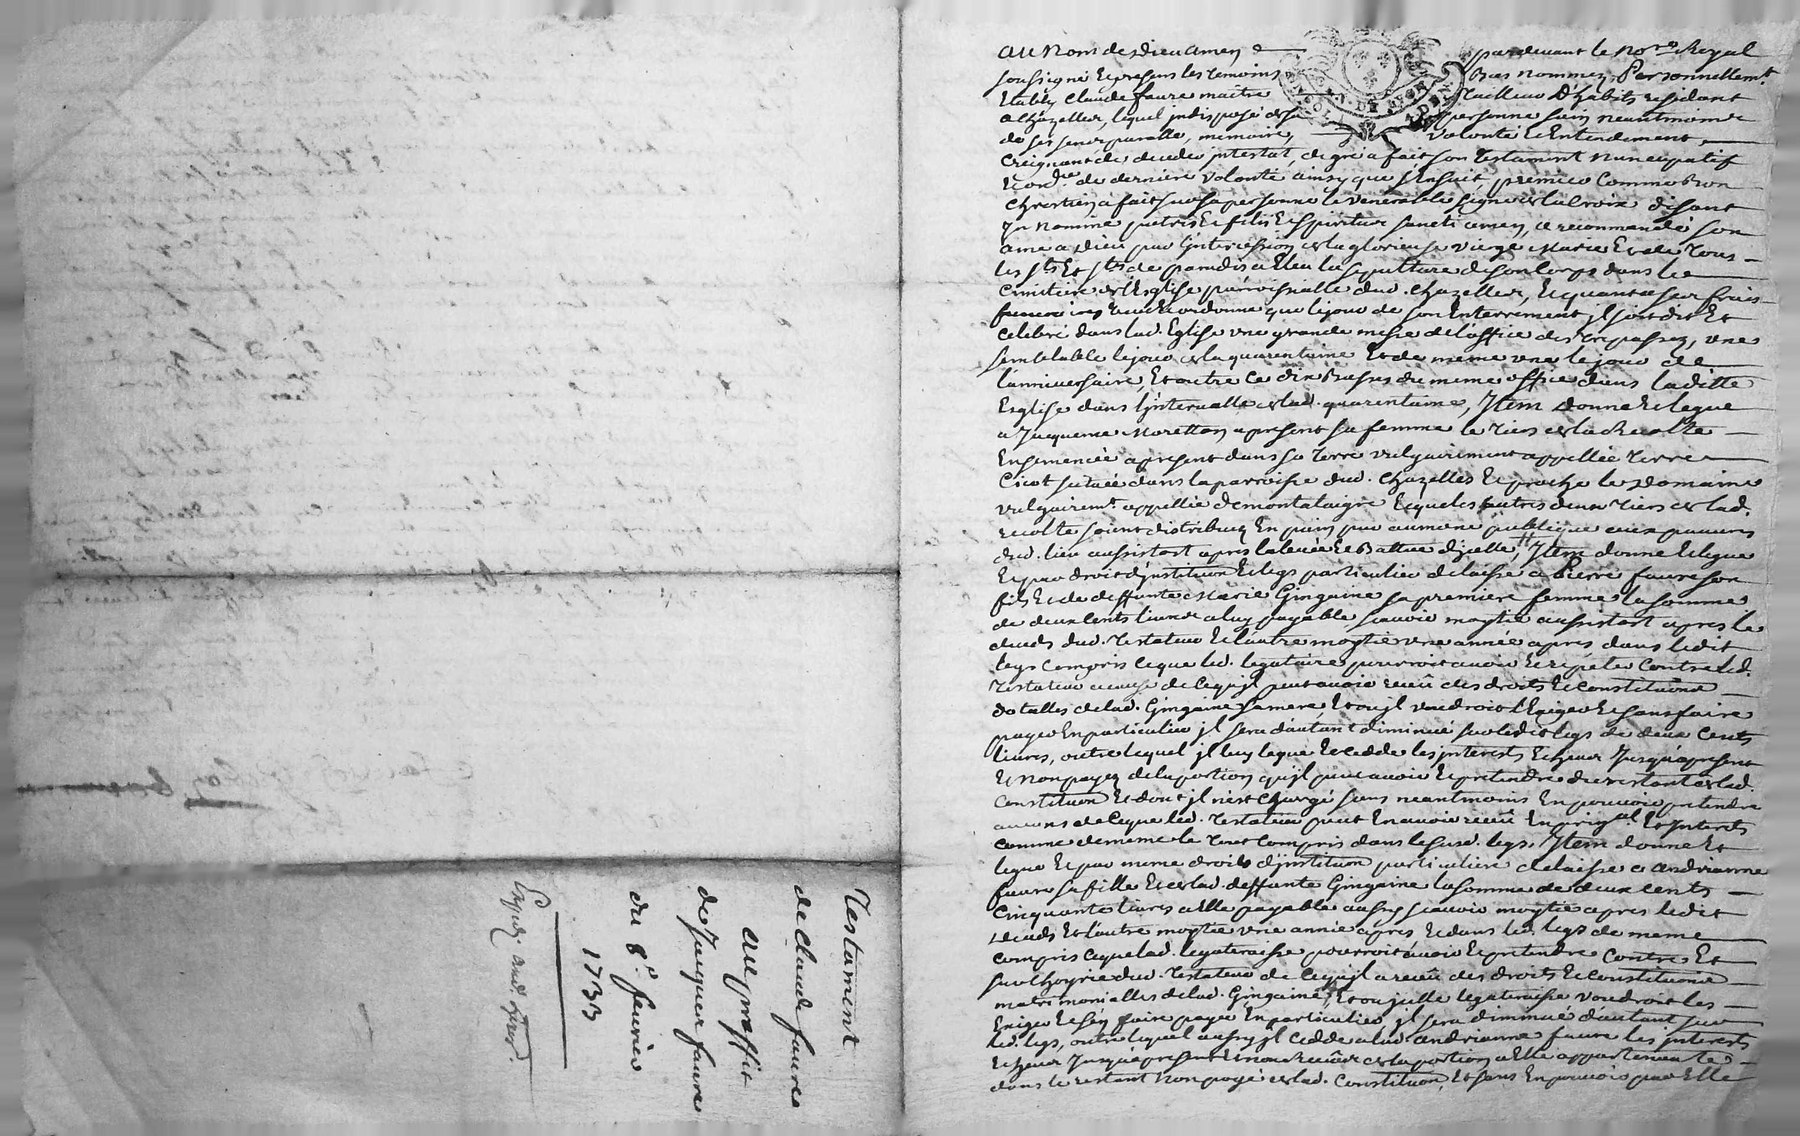 Testament
de Claude faure
au proffit
de Jacques faure
du 8e. feuvrier
1733
au Nom de Dieu amen pardevant le Nore. Royal
soussigné Et presens les temoins Bas nommez, Personnellemt.
Etably Claude faure maitre Tailleur d'habits residant
a Chazelles, lequel indisposé de sa personne sain neantmoins
de ses sens parolle, memoire, volonté Et Entendement
Creignant de deceder intestat, de gré a fait son Testament nuncupatif
Et ordre. de derniere volonté ainsy que s'Ensuit, premier Comme Bon
Chrestien a fait sur sa personne le venerable signe de la Croix disant
In nomine patris Et filii Et spiritus sancti amen, a recommandé son
ame a Dieu par l'intercession de la glorieuse vierge Marie Et de tous
les Sts. Et Stes. de paradis a Eleu la sepulture de son Corps dans le
Cimitiere de l'Eglise parroissialle dud. Chazelles, Et quant a ses frais
funeraires veut Et ordonne que le jour de son Enterrement il soit dit Et
Celebré dans lad. Eglise une grande messe de l'office des trepassez, une
semblable le jour de la quarentaine Et de meme une le jour de
l'anniversaire, Et outre Ce dix Basses du meme office dans laditte
Esglise dans l'intervalle de lad. quarentaine, Item donne Et legue
a Jacqueme Moretton a present sa femme le tiers de la Recolte
Ensemencée a present dans sa terre vulgairement appellée terre
Cicot scituée dans la parroisse dud. Chazelles Et proche le Domaine
vulgairemt. appellée de montalaigre Et que les autres deux tiers de lad.
recolte soient distribuez En pain par aumone publique aux pauvres
dud. lieu aussistost apres la levée Et Battue d'icelle, Item donne Et legue
Et par droit d'institution Et legs particulier delaisse a Pierre faure son
fils Et de deffunte Marie Gingaine sa premiere femme la somme
de deux Cents livres a luy payable, scavoir moytié aussistost apres le
deceds dud. Testateur Et l'autre moytié une année apres dans ledit
legs Compris Ce que led. legataire pourroit avoir Et repeter Contre led.
Testateur a cause de Ce qu'il peut avoir receu des droits Et Constitution
dotalles de lad. Gingaine sa mere, Et ou il voudroit l'Exiger Et s'en faire
payer En particulier il sera d'autant diminué sur ledit legs de deux Cents
livres, outre lequel il luy legue Et cedde les interests Echeux Jusqu'a present
Et non payez de la portion qu'il peut avoir Et pretendre du restant de lad.
Constitution Et dont il n'est Chargé sans neantmoins En pouvoir pretendre
aucuns de Ce que led. Testateur peut En avoir receu En prigal. Et Interets
Comme de meme le tout Compris dans le susd. legs, Item donne Et
legue Et par meme droit d'institution particuliere delaisse a Andrianne
faure sa fille Et de lad. deffunte Gingaine la somme de deux Cents
Cinquante livres a Elle payable aussy scavoir moytié apres ledit
deceds Et l'autre moytié une année apres Et dans led. legs de meme
Compris Ce que lad. legataresse pourroit avoir Et pretendre Contre Et
sur l'hoyrie dud. Testateur de Ce qu'il a receu des droits Et Constitution
matrimonialles de lad. Gingaine, Et ou icelle legataresse voudroit les
Exiger Et s'en faire payer En particulier il sera diminué d'autant sur
led. legs, outre lequel aussy il Cedde a lad. Andrianne faure les interets
Echeux Jusqu'a present Et non receux de la portion a Elle appartenante
dans le restant non payé de lad. Constitution, Et sans En pouvoir par Elle